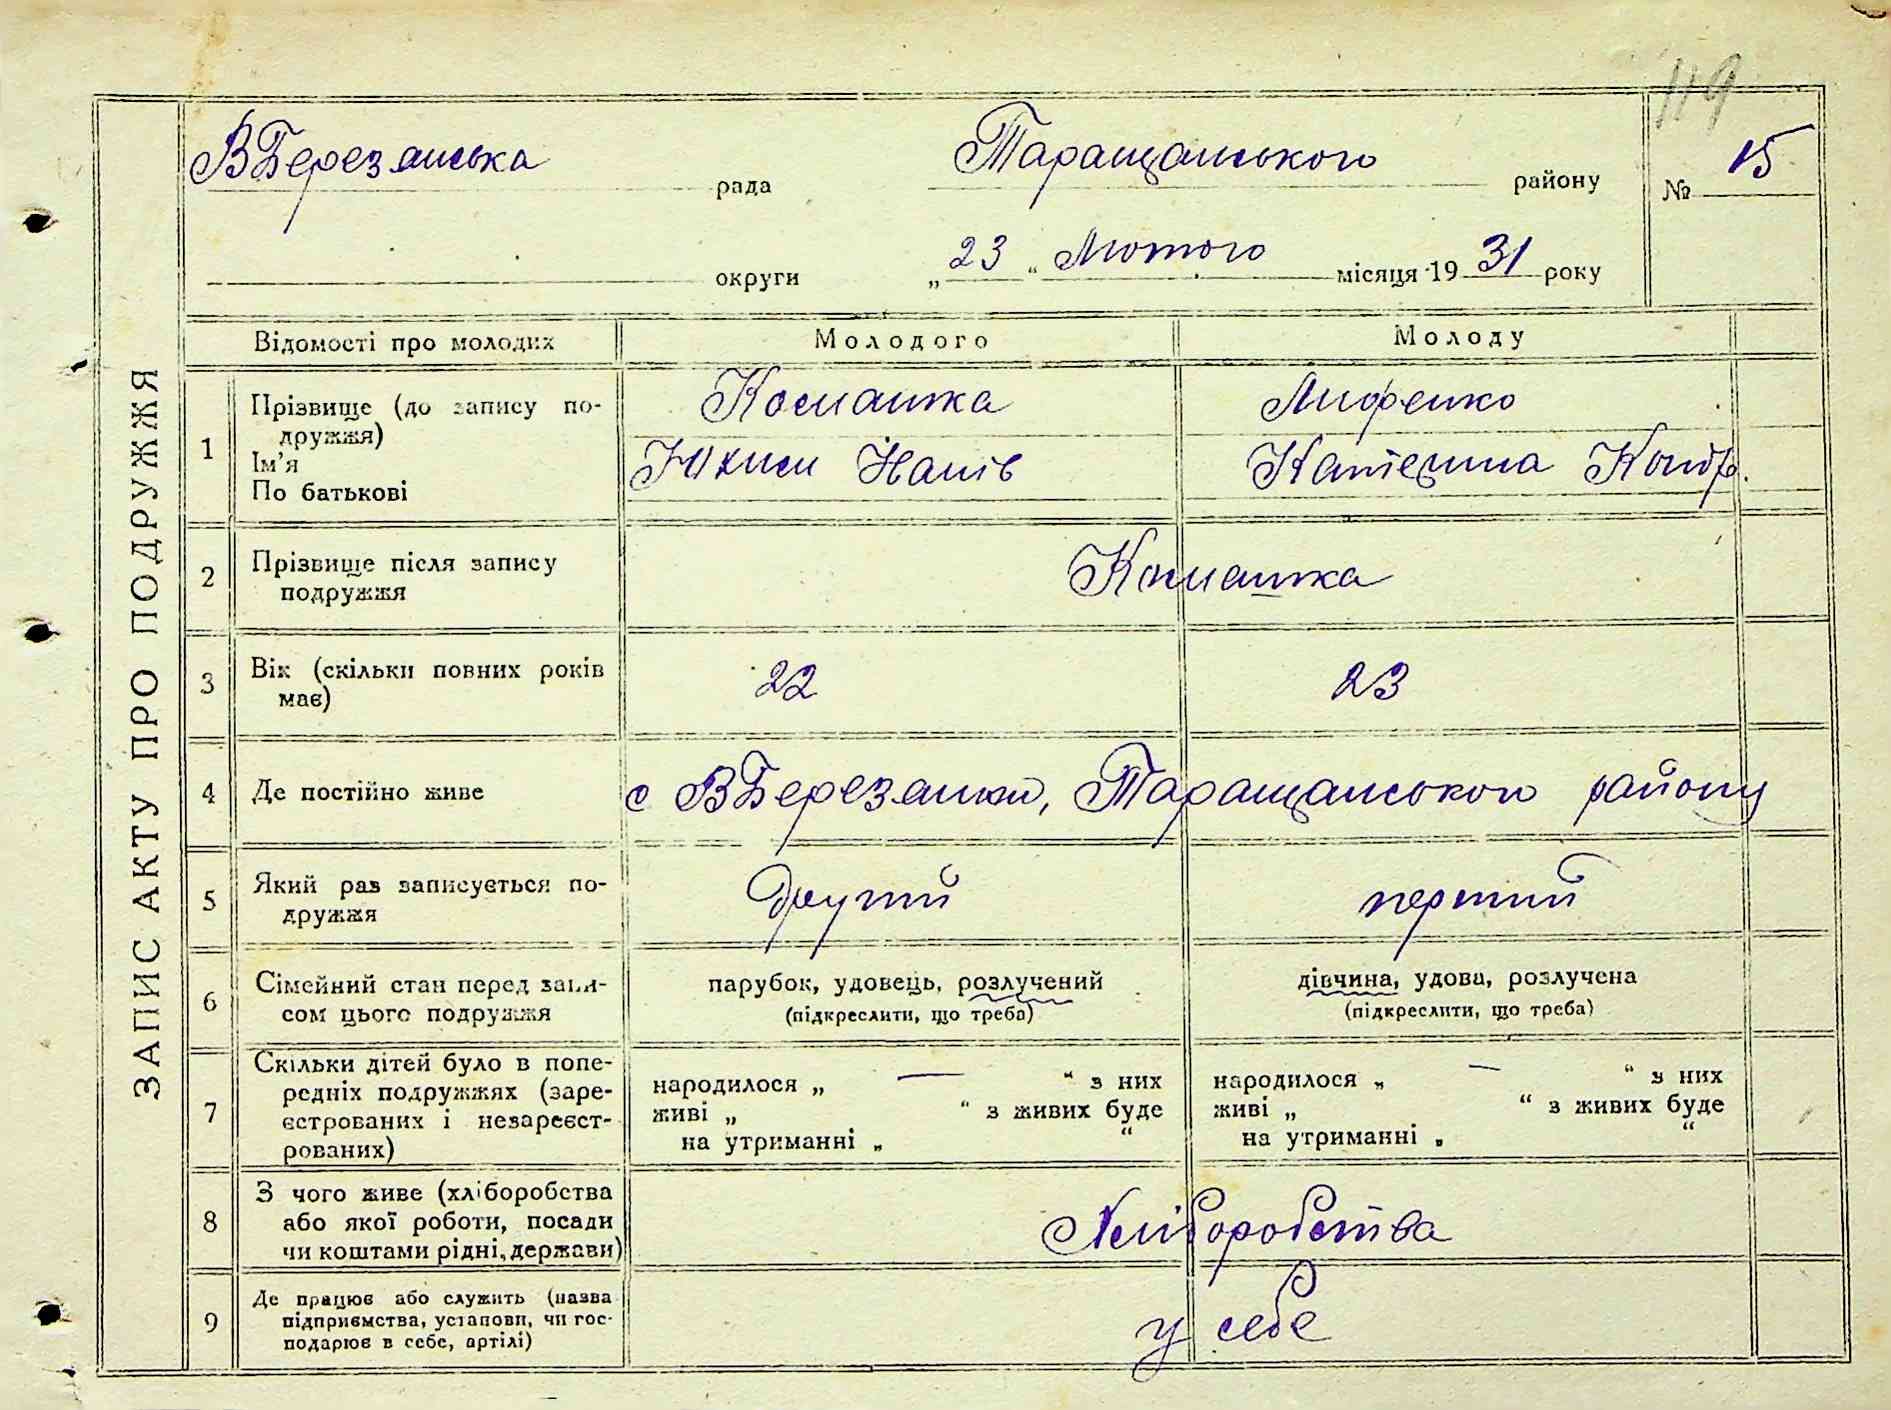 119
ВБерезанська рада Таращанського району № 15
округи „23“ Лютого місяця 1931 року
ЗАПИС АКТУ ПРО ПОДРУЖЖЯ
Відомості про молодих Молодого Молоду
1 Прізвище (до запису по-
дружжя)
Ім'я
По батькові
Катерина Кондр.
2 Прізвище після запису
подружжя
3 Вік (скільки повних років
має)
22 23
4 Де постійно живе
с ВБерезанки, Таращанського району
5 Який раз записується по-
дружжя
Другий перший
6 Сімейний стан перед запи-
сом цього подружжя
парубок, удовець, розлучений
(підкреслити, що треба)
дівчина, удова, розлучена
(підкреслити, що треба)
7 Скільки дітей було в попе-
редніх подружжях (заре-
єстрованих і незареєст-
рованих)
народилося „ — “ з них
живі „ “ з живих буде
на утриманні „ “
народилося „ — “ з них
живі „ “ з живих буде
на утриманні „ “
8 З чого живе (хліборобства
або якої роботи, посади
чи коштами рідні, держави)
Хліборобства
9 Де працює або служить (назва
підприємства, установи, чи гос-
подарює в себе, артілі)
у себе